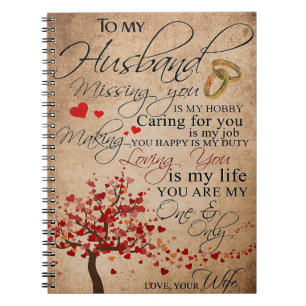 TO MY
Husband
Missing you
IS MY HOBBY
Caring for you
is my job
Making
YOU HAPPY IS MY DUTY
Loving You
is my life
YOU ARE MY
One &
Only
LOVE, YOUR Wife